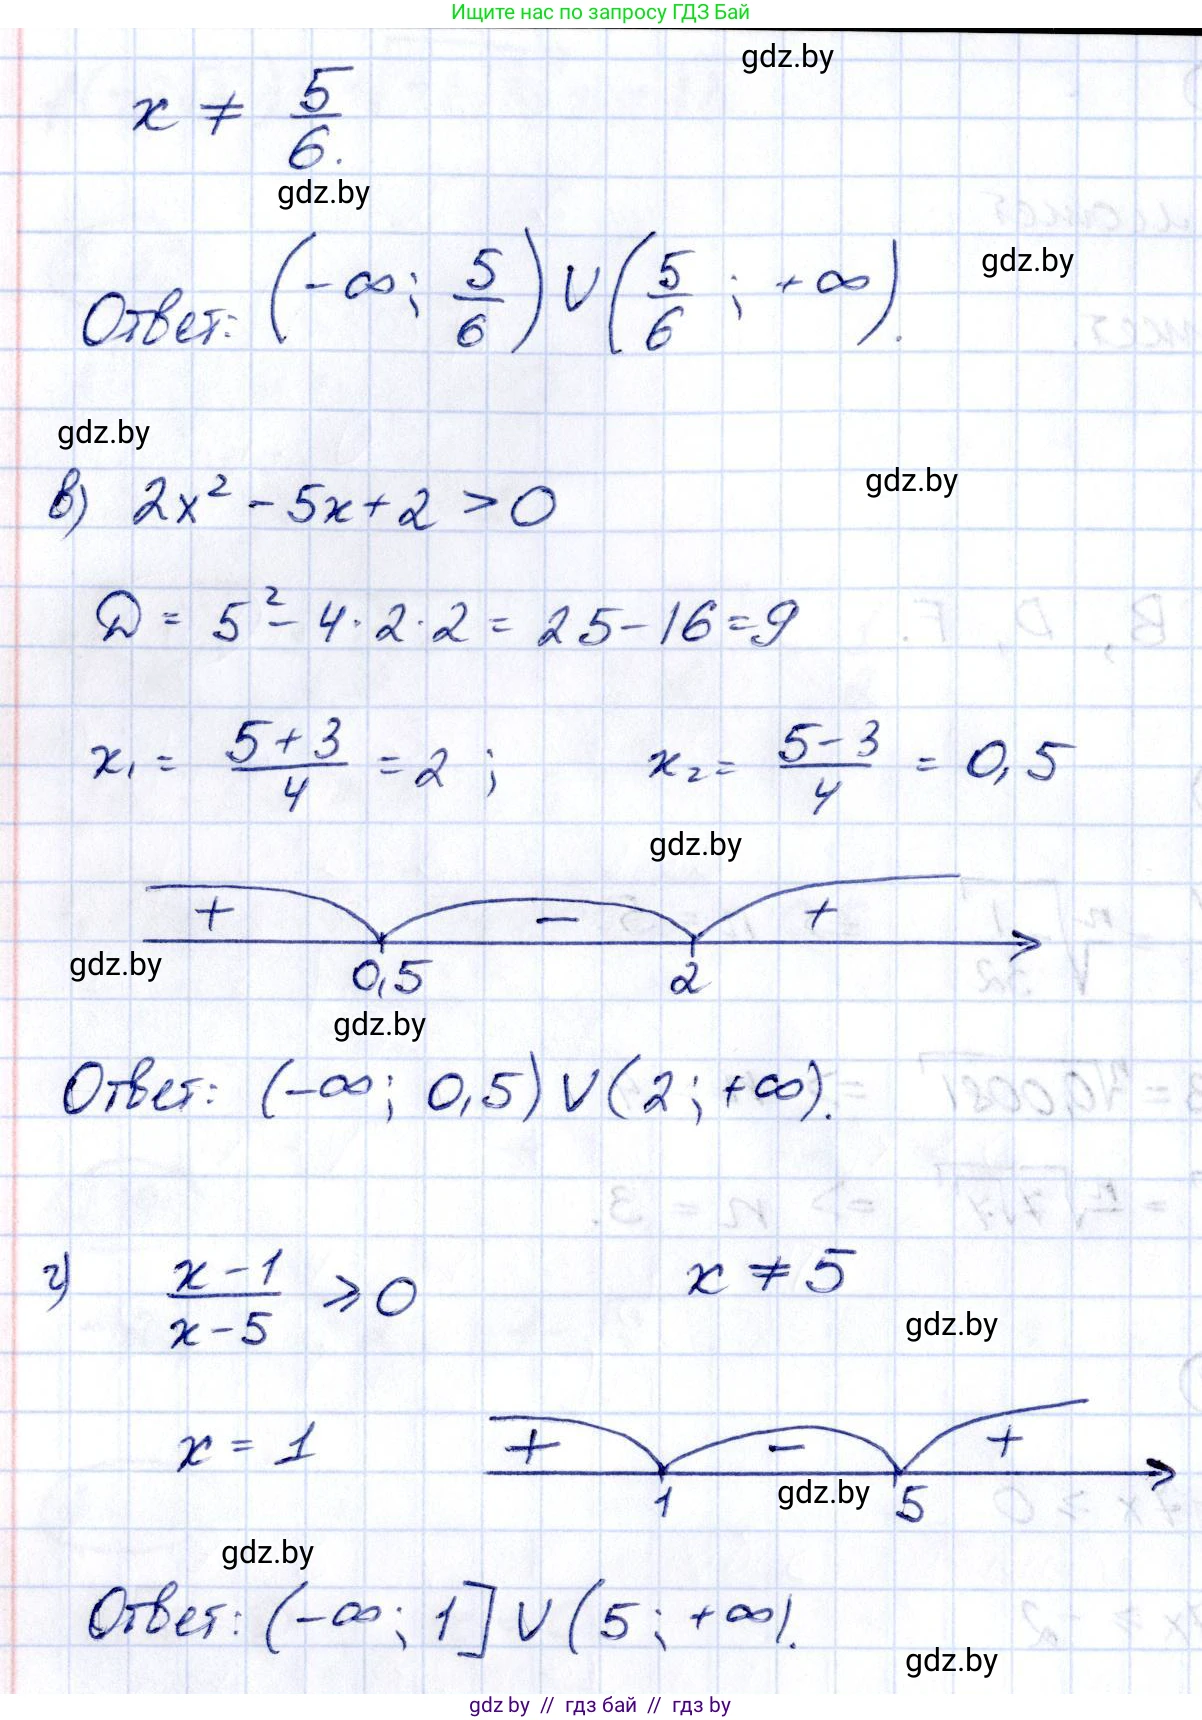 Ищите нас по запросу ГДЗ Бай
gdz.by
x ≠ 5/6.
gdz.by
gdz.by
Ответ: (-∞; 5/6) ∪ (5/6; +∞).
gdz.by
gdz.by
в) 2x² - 5x + 2 > 0
D = 5² - 4·2·2 = 25 - 16 = 9
x₁ = (5+3)/4 = 2; x₂ = (5-3)/4 = 0,5
gdz.by
+ - +
gdz.by
0,5 2
gdz.by
Ответ: (-∞; 0,5) ∪ (2; +∞).
г) (x-1)/(x-5) ≥ 0 x ≠ 5
gdz.by
x = 1 + - +
gdz.by
1 5
gdz.by
Ответ: (-∞; 1] ∪ (5; +∞).
gdz.by
gdz.by // гдз бай // гдз by